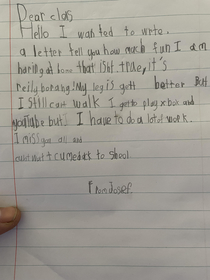 Dear clas
Hello I wanted to write.
a letter tell you how much fun I am
haring at home that isht true, it's
reily borang! My leg is gett better But
I still cant walk I gett to play x box and
youtube but I have to do a lot of work.
I miss you all and
could wait t cume back to shool
From Josef